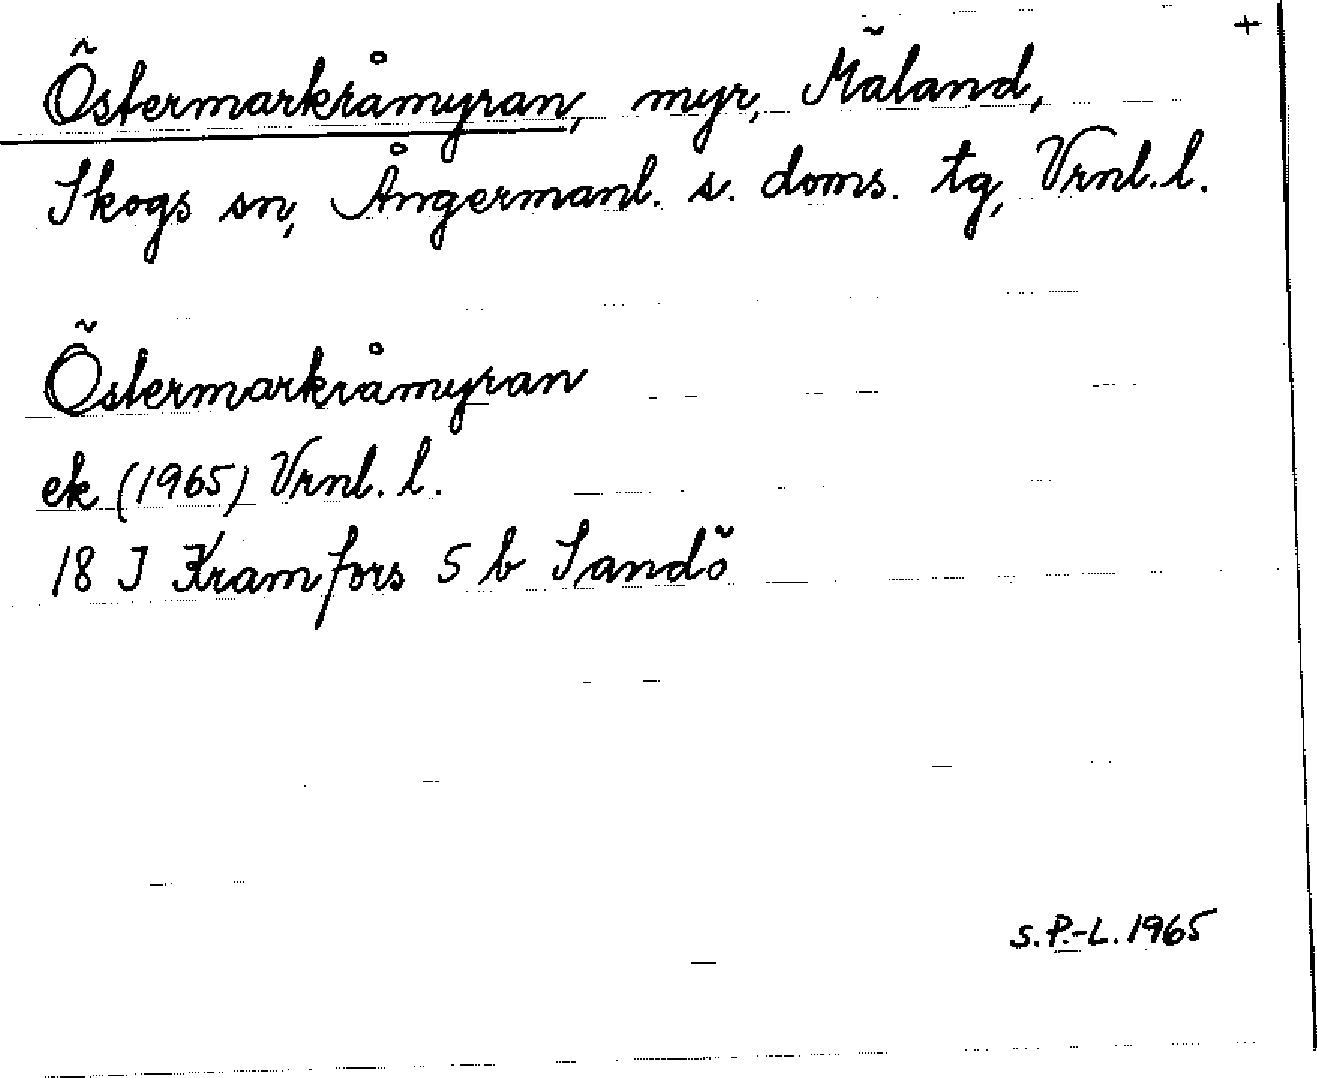 +
Östermarkråmyran, myr, Mäland,
Skogs sn, Ångermanl. s. doms. tg, Vrnl. l.
Östermarkråmyran
ek (1965) Vrnl. l.
18 J Kramfors 5 b Sandö
S. P.-L. 1965